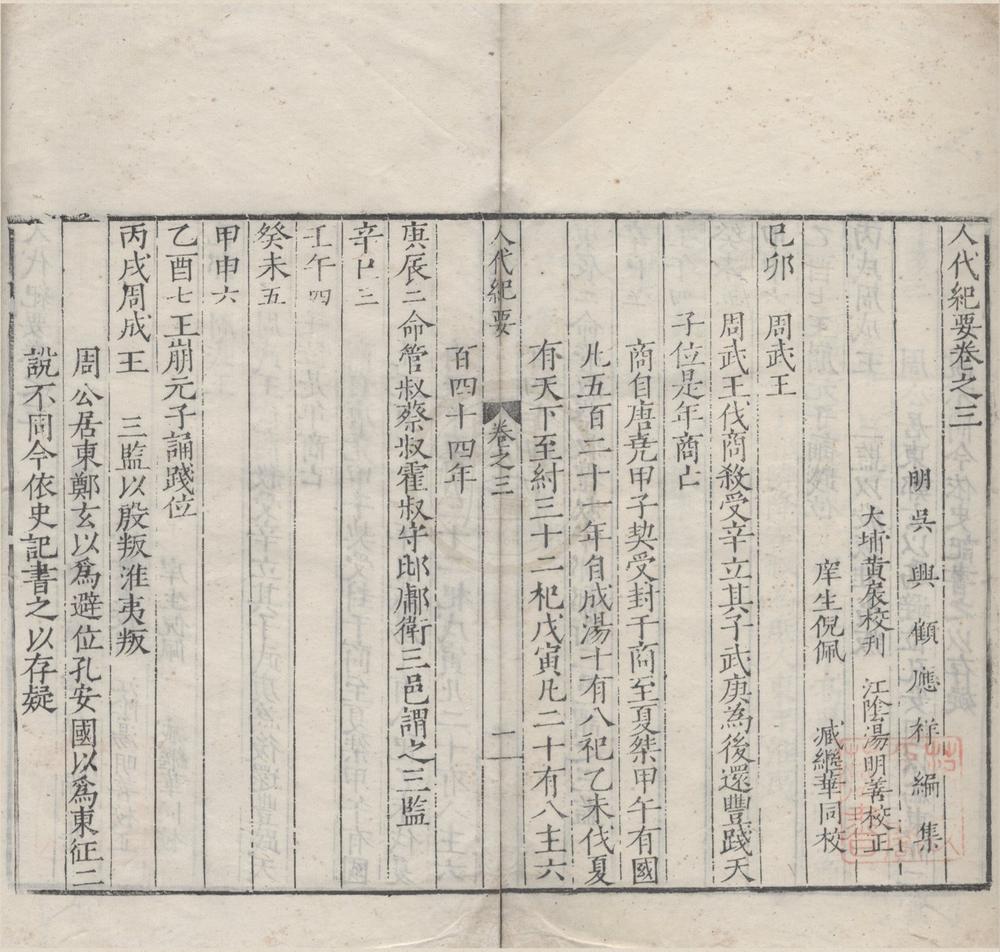 人代紀要卷之三
明吳興顧應祥編集
大埔黃扆校刊 江陰湯明善校正
庠生倪佩 臧繼華同校
己卯 周武王
周武王伐商殺受辛立其子武庚為後還豐踐天
子位是年商亡
商自唐堯甲子契受封于商至夏桀甲午有國
凡五百二十一年自成湯十有八祀乙未伐夏
有天下至紂三十二祀戊寅凡二十有八主六
人代紀要 卷之三 一
百四十四年
庚辰二命管叔蔡叔霍叔守邶鄘衛三邑謂之三監
辛巳三
壬午四
癸未五
甲申六
乙酉七王崩元子誦踐位
丙戌周成王 三監以殷叛淮夷叛
周公居東鄭玄以為避位孔安國以為東征二
說不同今依史記書之以存疑